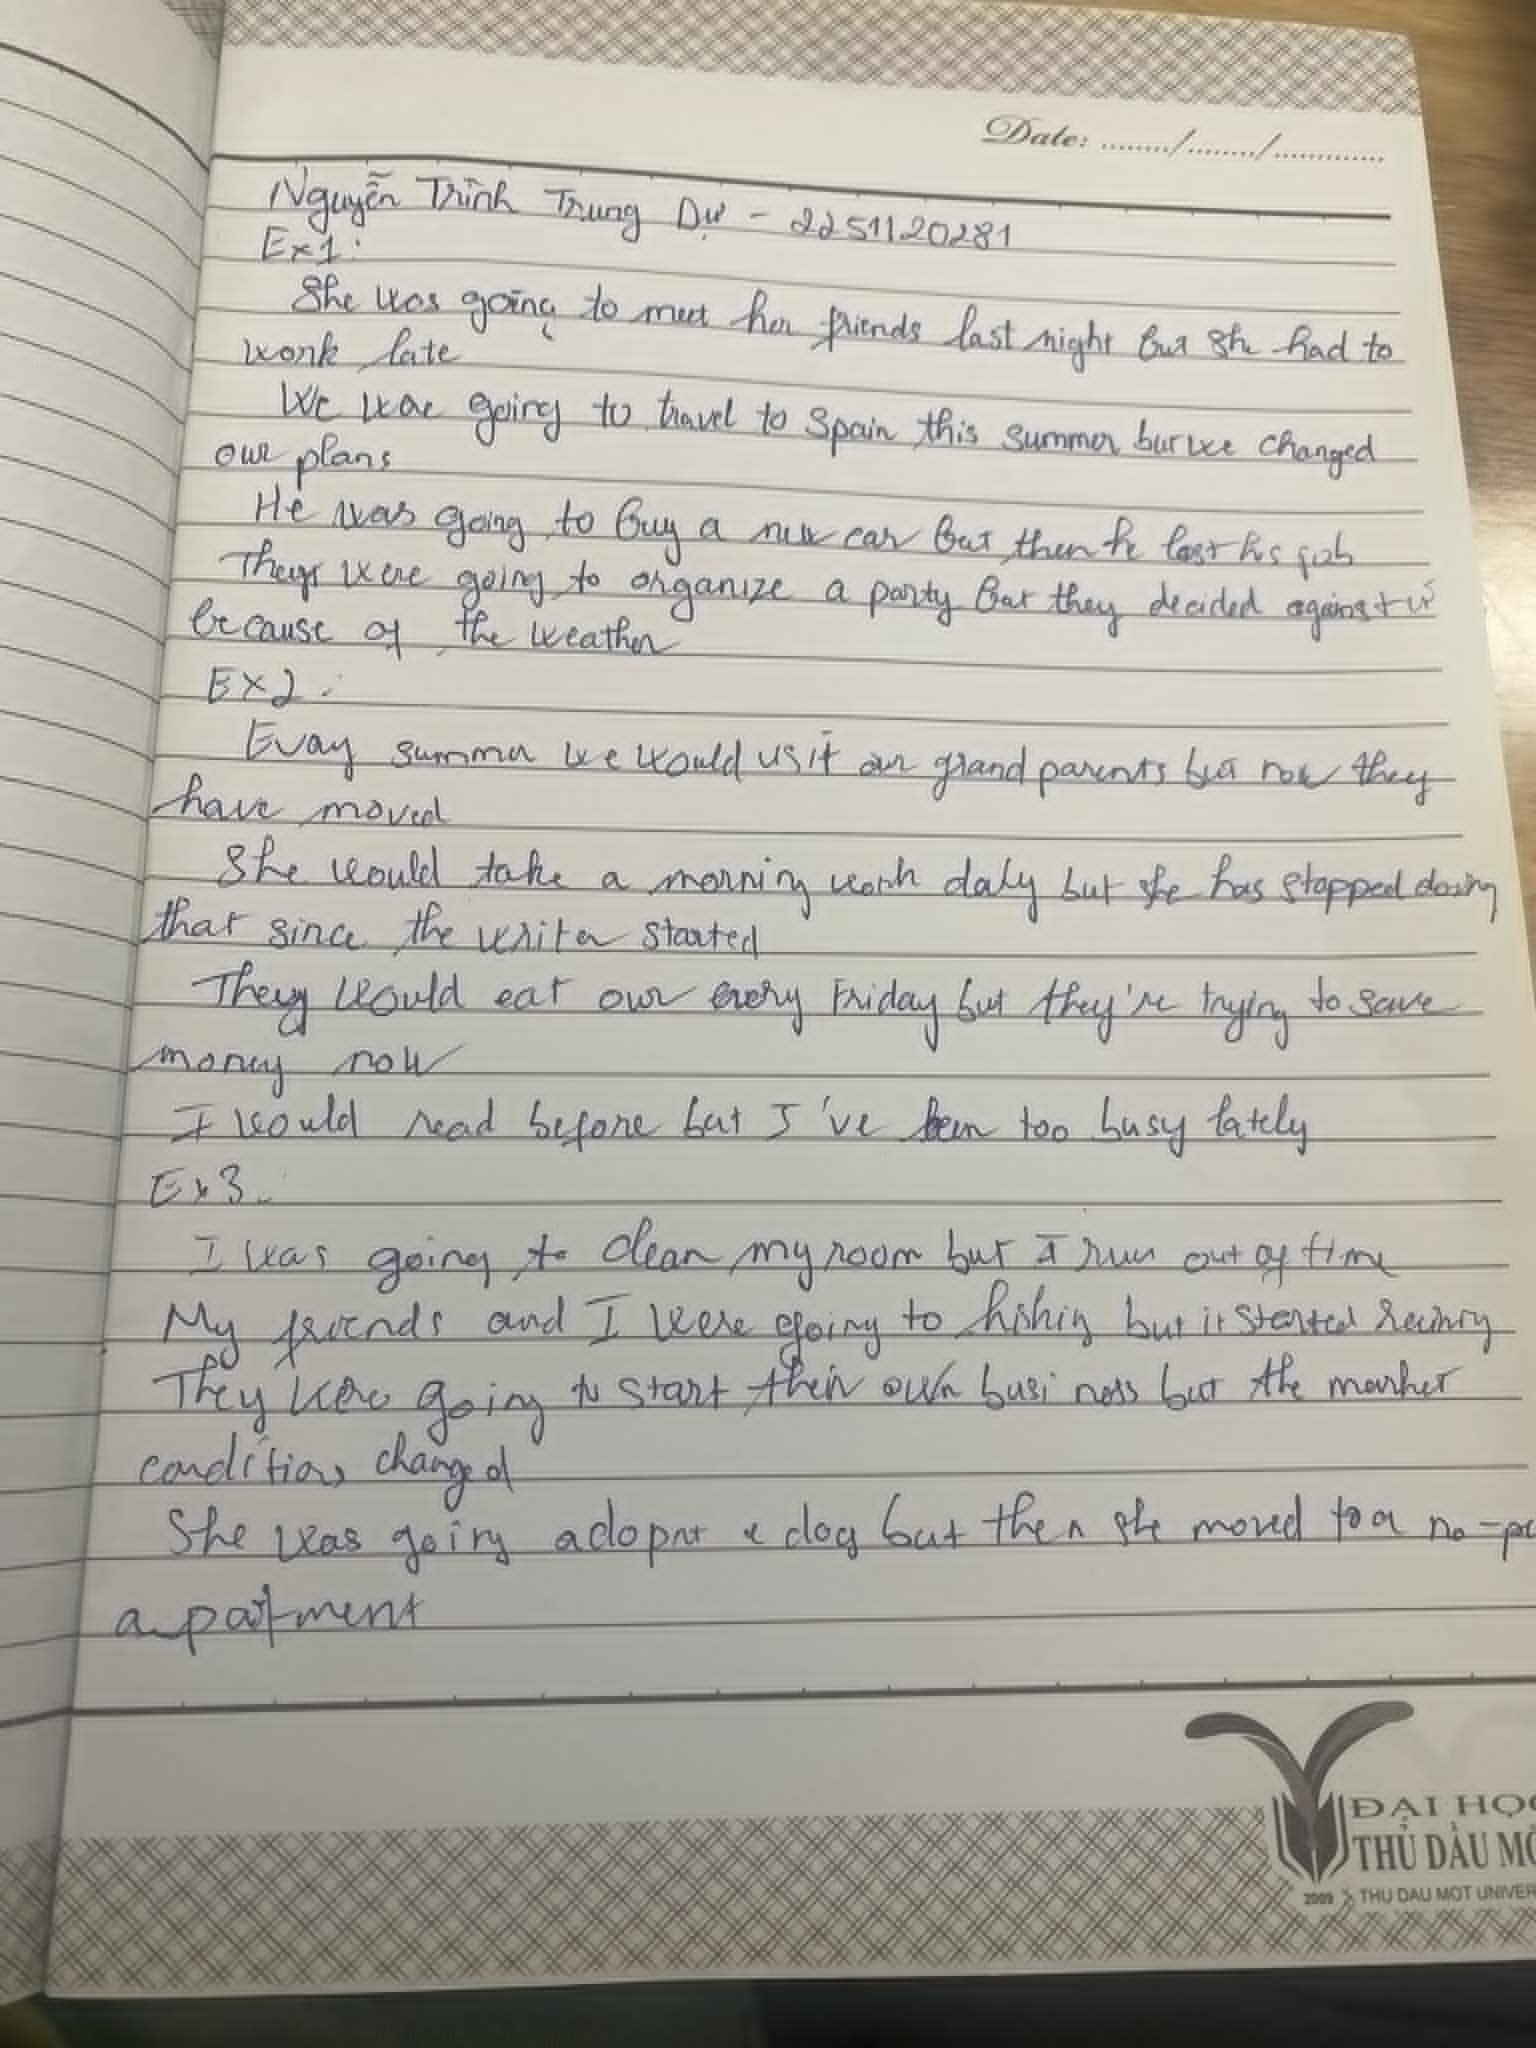 Date: ......../......../.............
Nguyễn Trình Trung Dự - 2251120281
Ex1:
She was going to meet her friends last night but she had to
work late
We were going to travel to Spain this summer but we changed
our plans
He was going to buy a new car but then he lost his job
They were going to organize a party but they decided against it
because of the weather
Ex2:
Every summer we would visit our grandparents but now they
have moved
She would take a morning daly but she has stopped doing
that since the started
They would eat our every Friday but they're trying to save
money now
I would read before but I've been too busy lately
Ex3.
I was going to clean my room but I run out of time
My friends and I were going to but it started
They were going to start their own business but the market
conditions changed
She was going adopt a dog but then she moved to a no-pe
apartment
ĐẠI HỌC
THỦ DẦU MỘ
2009 THU DAU MOT UNIVER